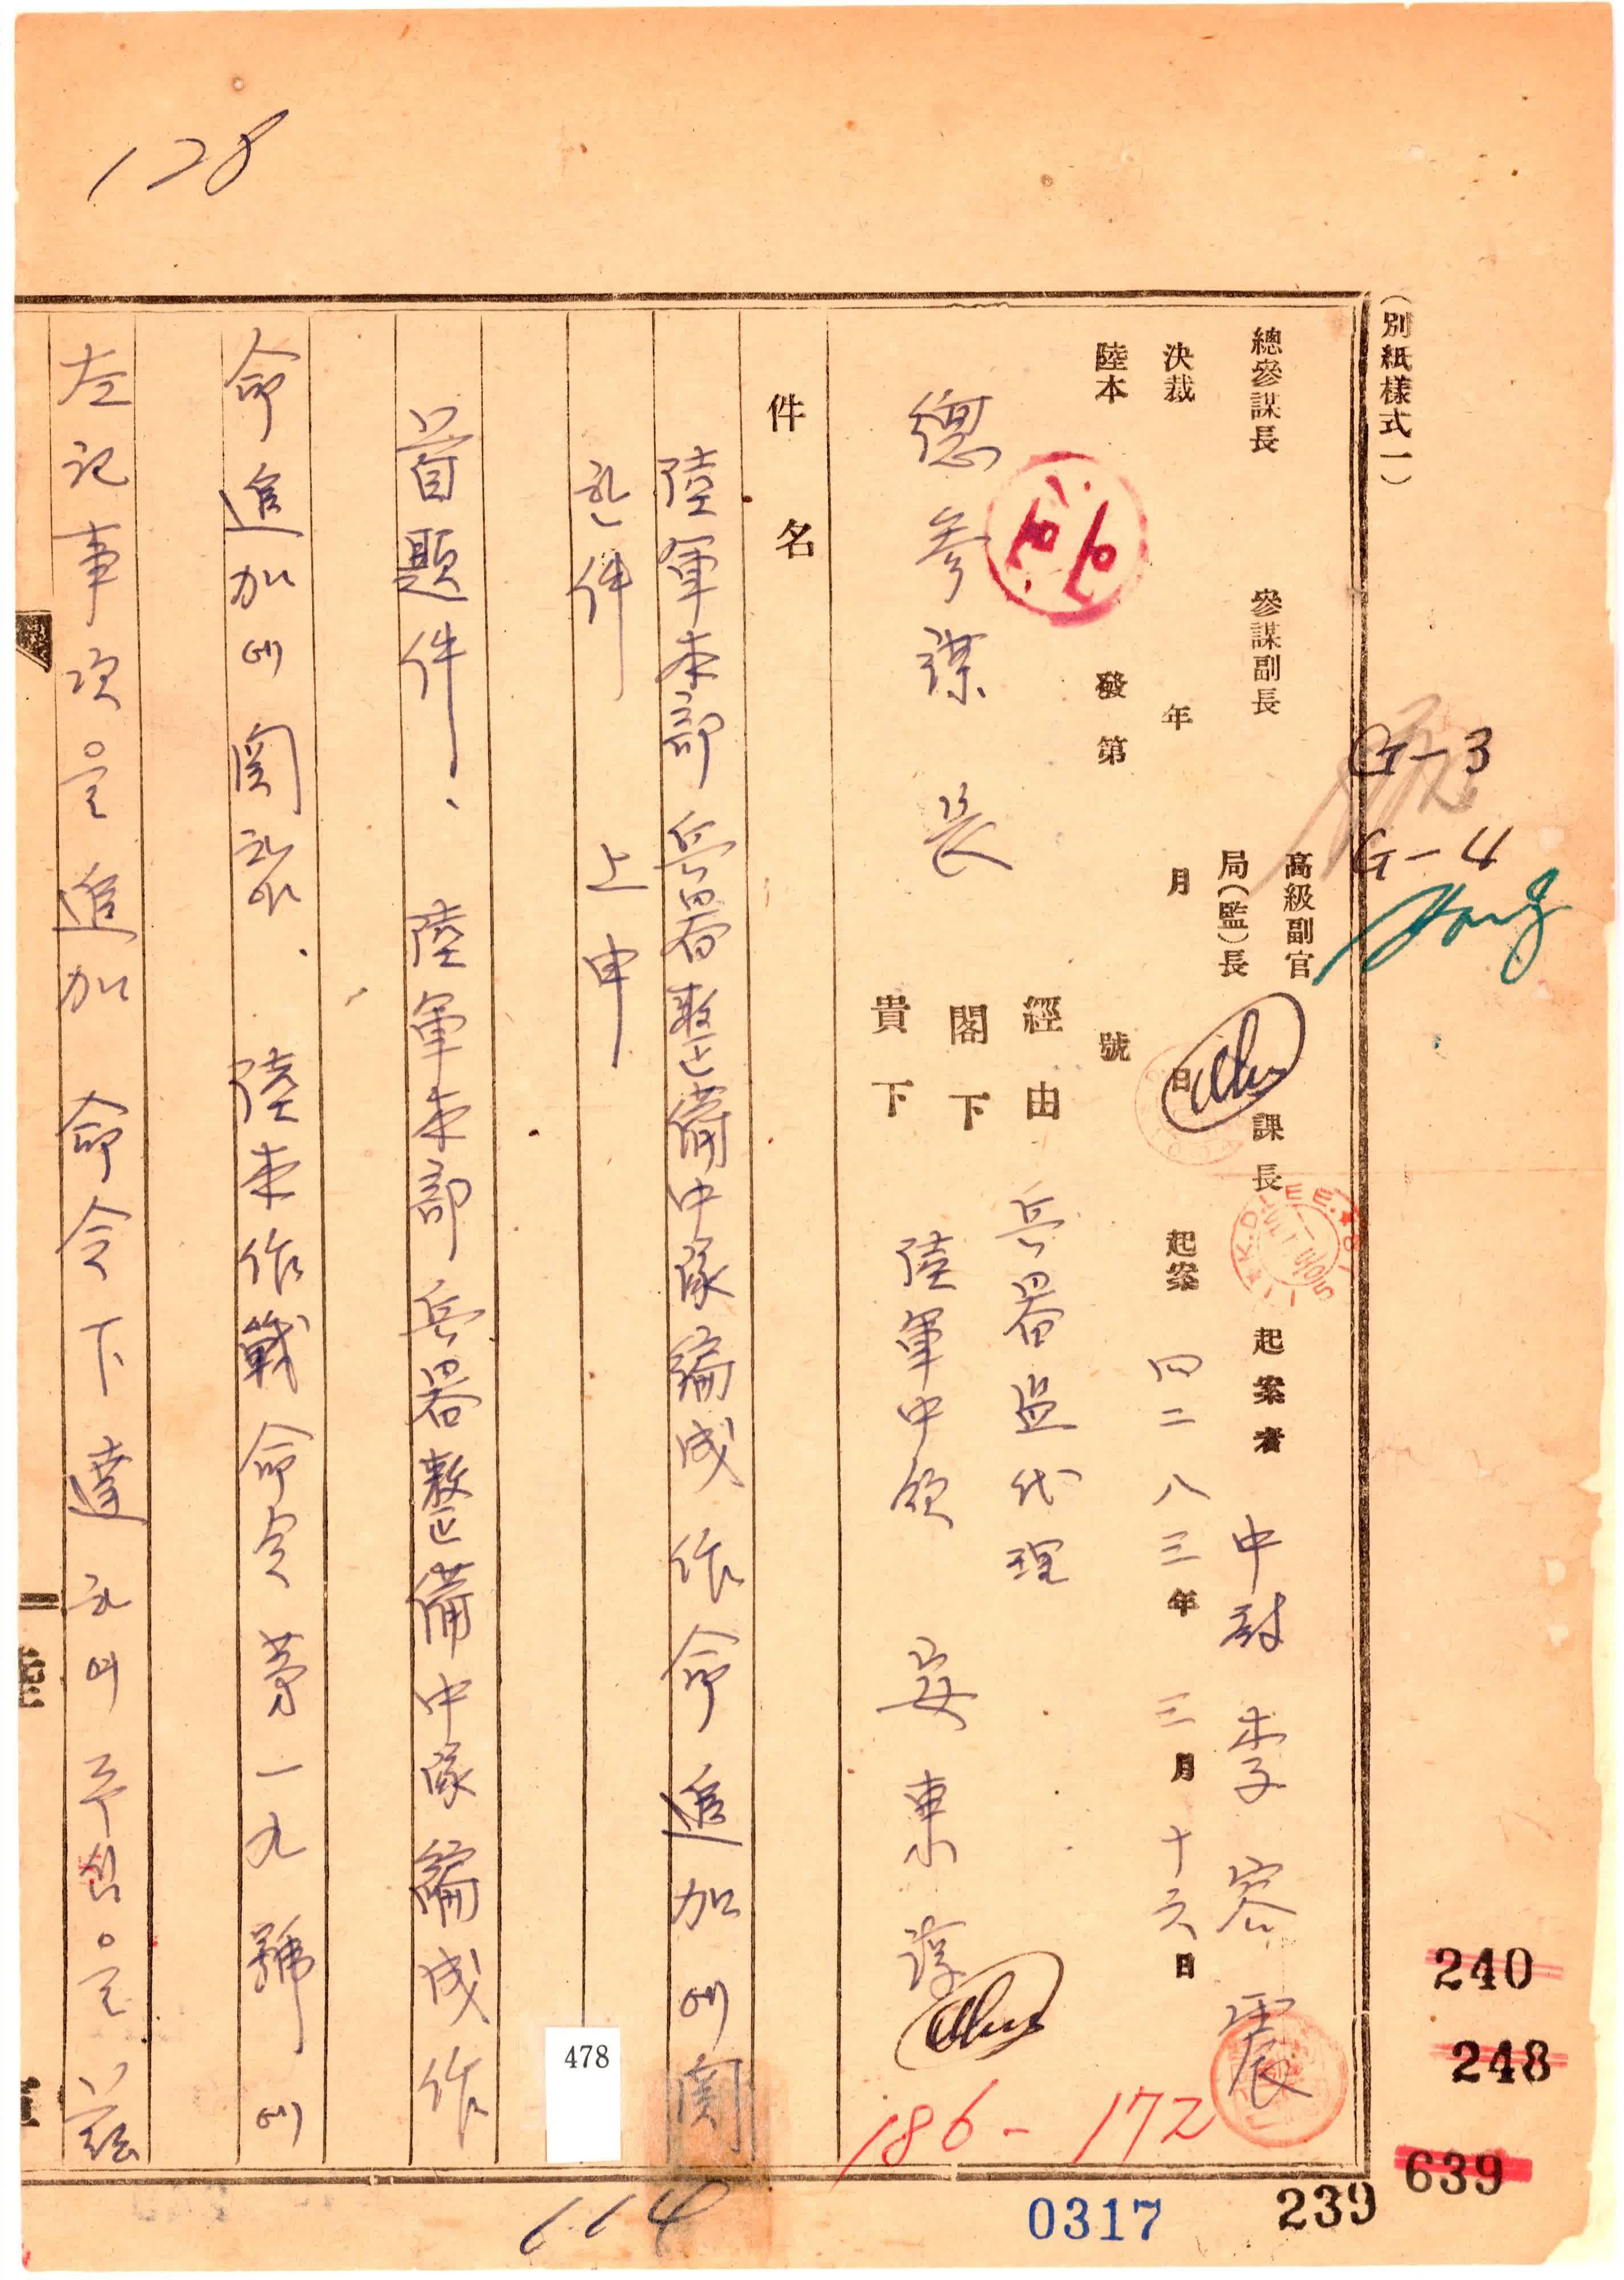 128
(別紙樣式一)
G-3
G-4
總參謀長 參謀副長 高級副官
局(監)長 課長 起案者 中尉 李容震
決裁 年 月 日 起案 四二八三年 三月 十六日
陸本 發第 號
經由 兵器監代理
總參謀長 閣下
貴下 陸軍中領 安東淳
件名
陸軍本部 兵器整備中隊編成 作命 追加에 関
한 件 上申
首題件、陸軍本部 兵器整備中隊編成作
命追加에 関하야. 陸本作戰命令第一九號에
左記事項으로 追加 命令下達하여주심으로 玆
K.D.LEE
186-172
478
114
0317
239
240
248
639